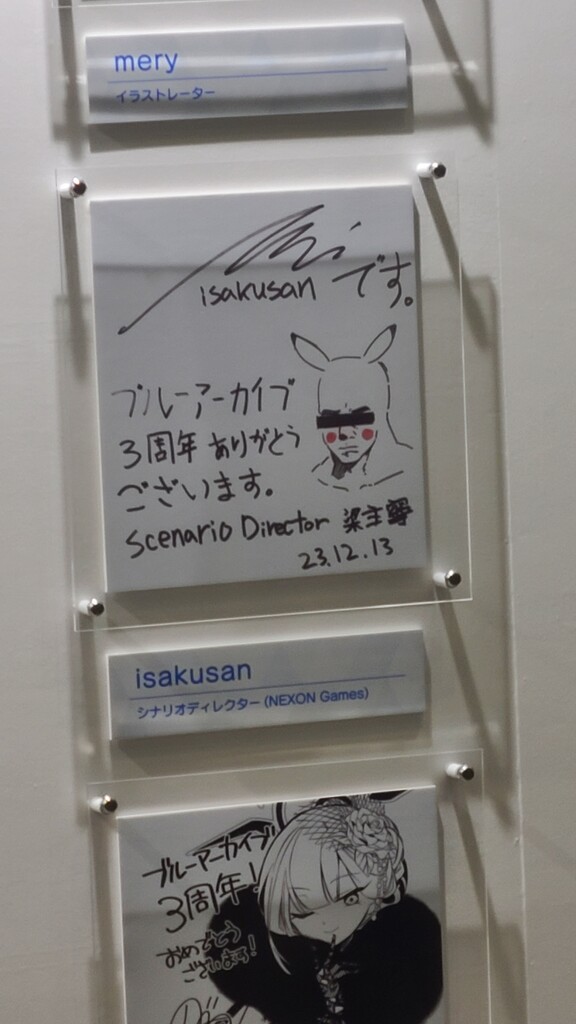 mery
イラストレーター
isakusan です。
ブルーアーカイブ
3周年 ありがとう
ございます。
Scenario Director 梁主
23.12.13
isakusan
シナリオディレクター (NEXON Games)
ブルーアーカイブ
3周年!
おめでとう
ございます!